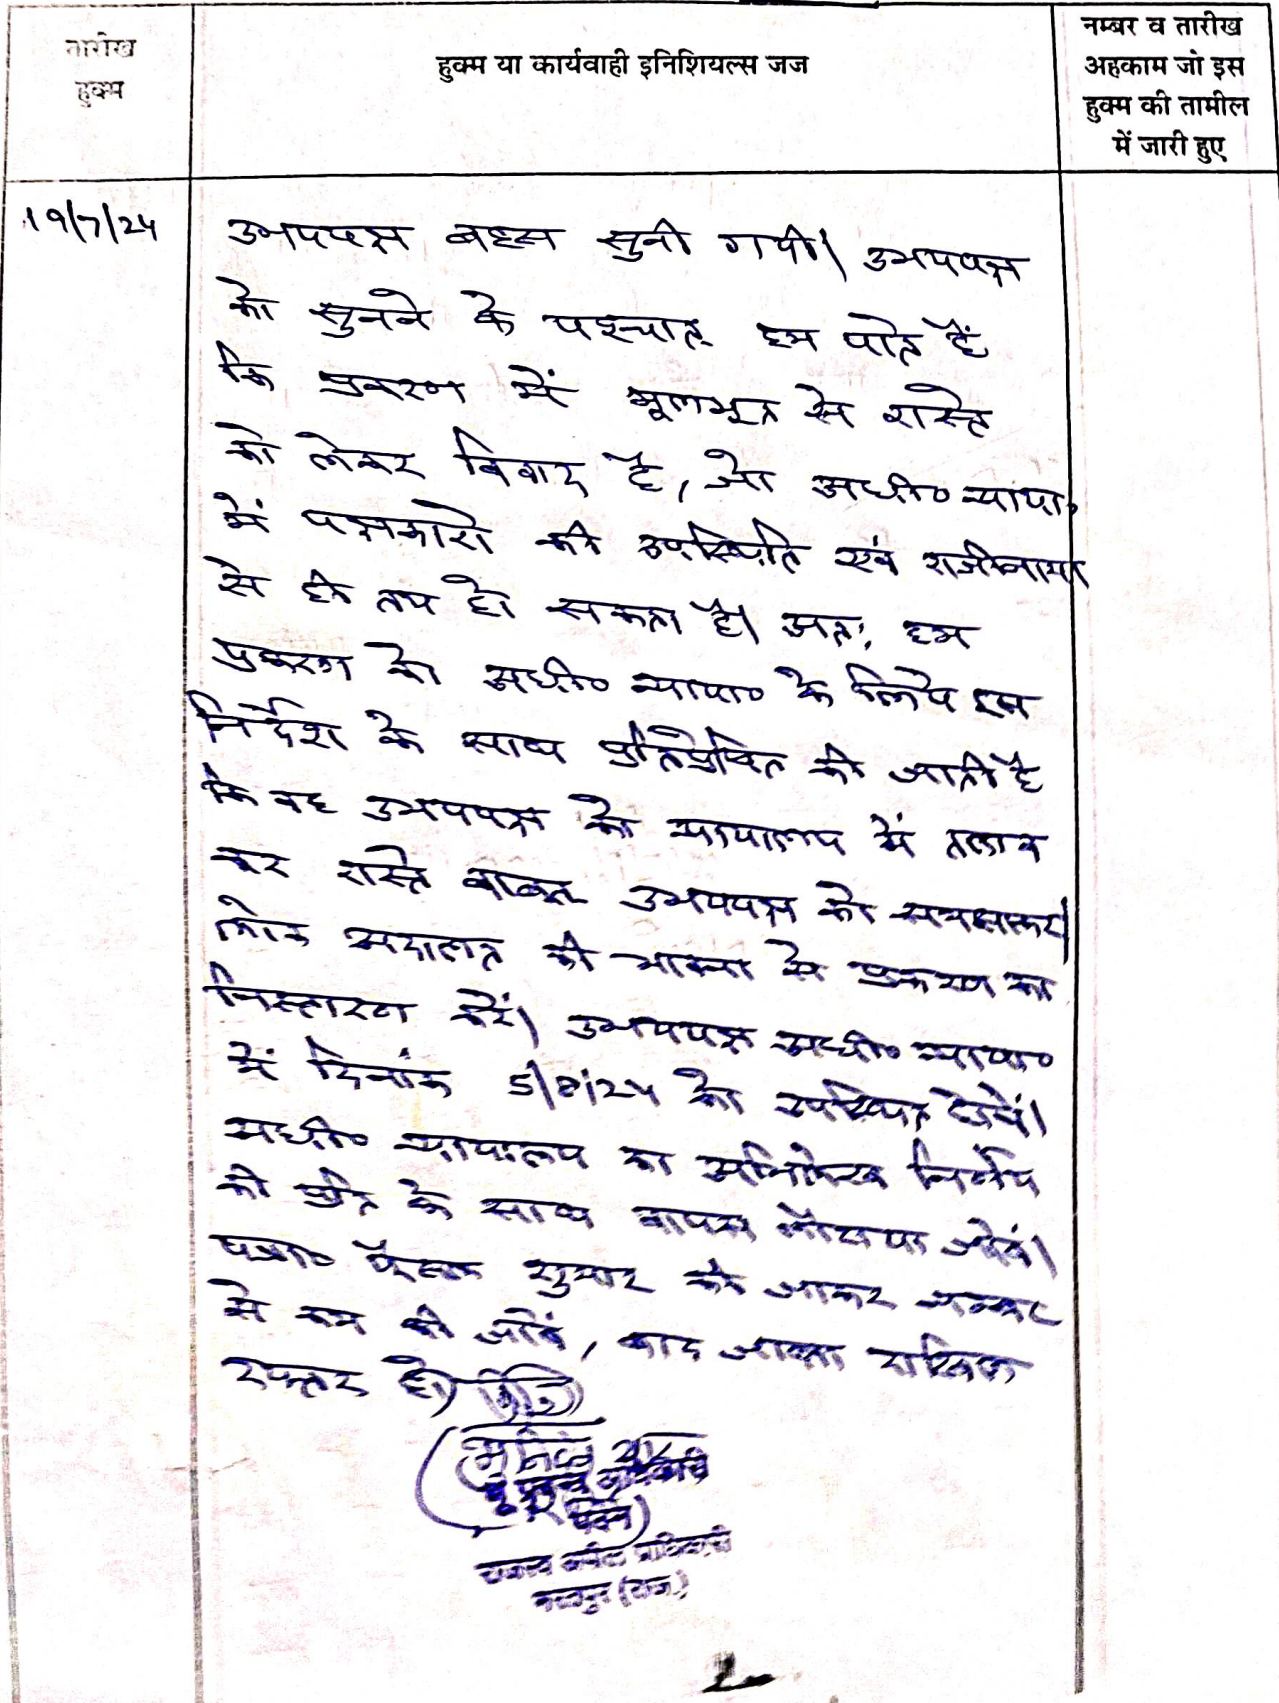 तारीख
हुक्म
हुक्म या कार्यवाही इनिशियल्स जज
नम्बर व तारीख
अहकाम जो इस
हुक्म की तामील
में जारी हुए
19/7/24
उभयपक्ष बहस सुनी गयी। उभयपक्ष
को सुनने के पश्चात् हम पाते हैं
कि प्रकरण में मूलभूत से रास्ते
को लेकर विवाद है, जो अधी० न्याया०
में पक्षकारो की उपस्थिति एवं राजीनामा
से ही तय हो सकता है। अतः हम
प्रकरण को अधी० न्याया० के लिये इस
निर्देश के साथ प्रतिप्रेषित की जाती है
कि वह उभयपक्ष को न्यायालय में तलब
कर रास्ते बाबत् उभयपक्ष को समझाकर
लोक अदालत की भावना से प्रकरण का
निस्तारण करें। उभयपक्ष अधी० न्याया०
में दिनांक 5/8/24 को उपस्थित होवें।
अधी० न्यायालय का अभिलेख निर्णय
की प्रति के साथ वापस लौटाया जावें।
पत्रा० फैसल शुमार की जाकर नम्बर
से कम की जावें, बाद जाब्ता दाखिल
दफ्तर हो।
भू प्रबन्ध अधिकारी
पदेन)
राजस्व अपील प्राधिकारी
(राज.)